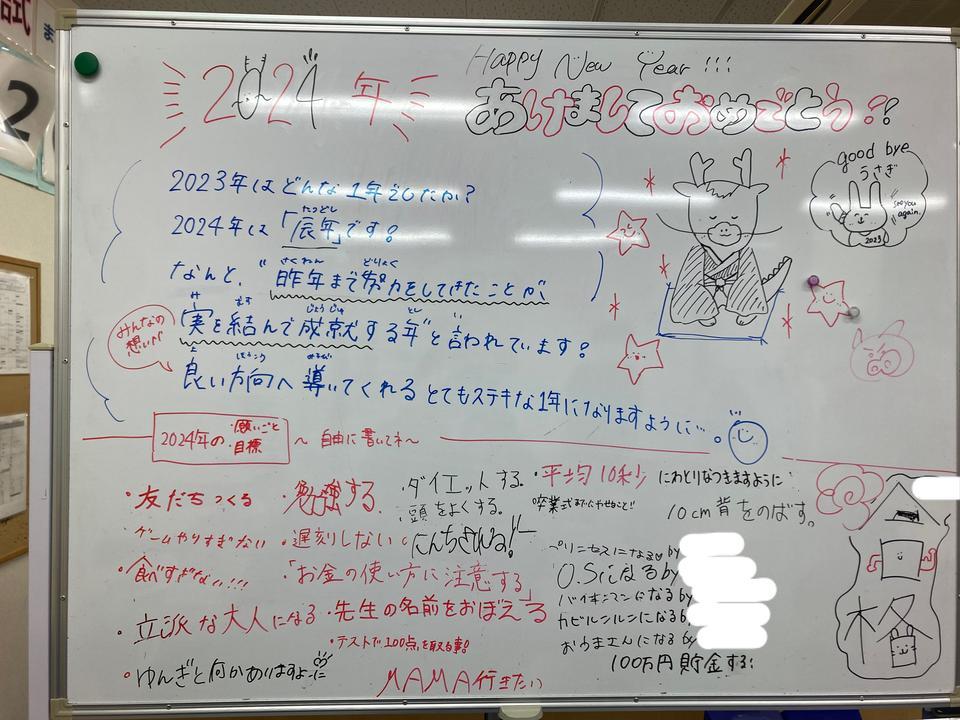 2024年
Happy New Year!!!
あけましておめでとう!!
good bye
うさぎ
see you again.
2023
2023年はどんな1年でしたか?
2024年は「辰年」です!
たつどし
なんと、"昨年まで努力をしてきたことが、
さくねん どりょく
みんなの想い!!
実を結んで成就する年"と言われています!
み むす じょうじゅ とし い
良い方向へ導いてくれるとてもステキな1年になりますように…。
よ ほうこう みちび
2024年の・願いごと・目標 〜自由に書いてネ〜
・友だちつくる
・勉強する
・ダイエットする
・平均10秒
にわとりなつきますように
頭をよくする。
卒業式までにやせること!!
10cm背をのばす。
ゲームやりすぎない
・遅刻しない
にんちされる!!
・食べすぎない!!!
「お金の使い方に注意する」
プリンセスになる♡by
O.Sになるby
バイキンマンになるby
カビルンルンになるby
おうまさんになるby
・立派な大人になる
・先生の名前をおぼえる
・テストで100点を取る事!
100万円貯金する!
・ゆんぎと何かあいますよーに
MAMA行きたい
格